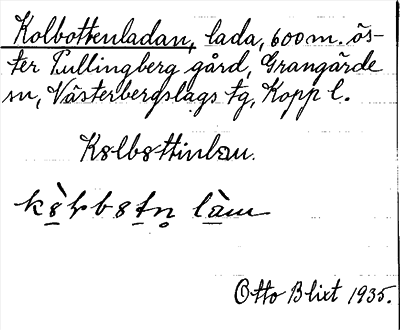 Kolbottenladan, lada, 600 m. ös-
ter Pullingberg gård, Grangärde
sn, Västerbergslags tg, Kopp l.
Kolbottinlan.
Otto Blixt 1935.